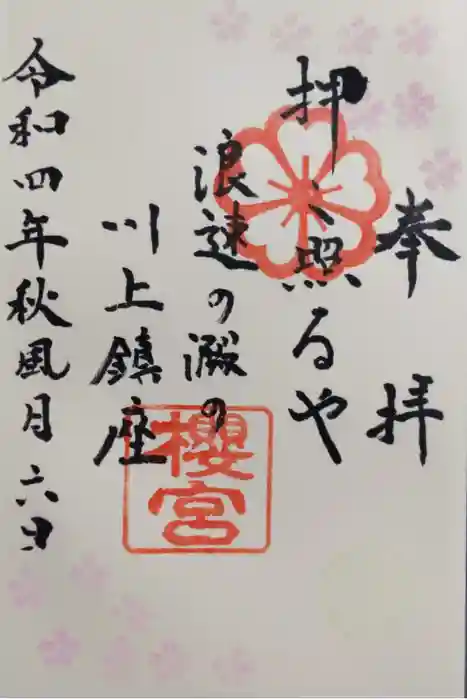 奉拝
押し照るや
浪速の澱の
川上鎮座
令和四年秋風月六日
櫻宮